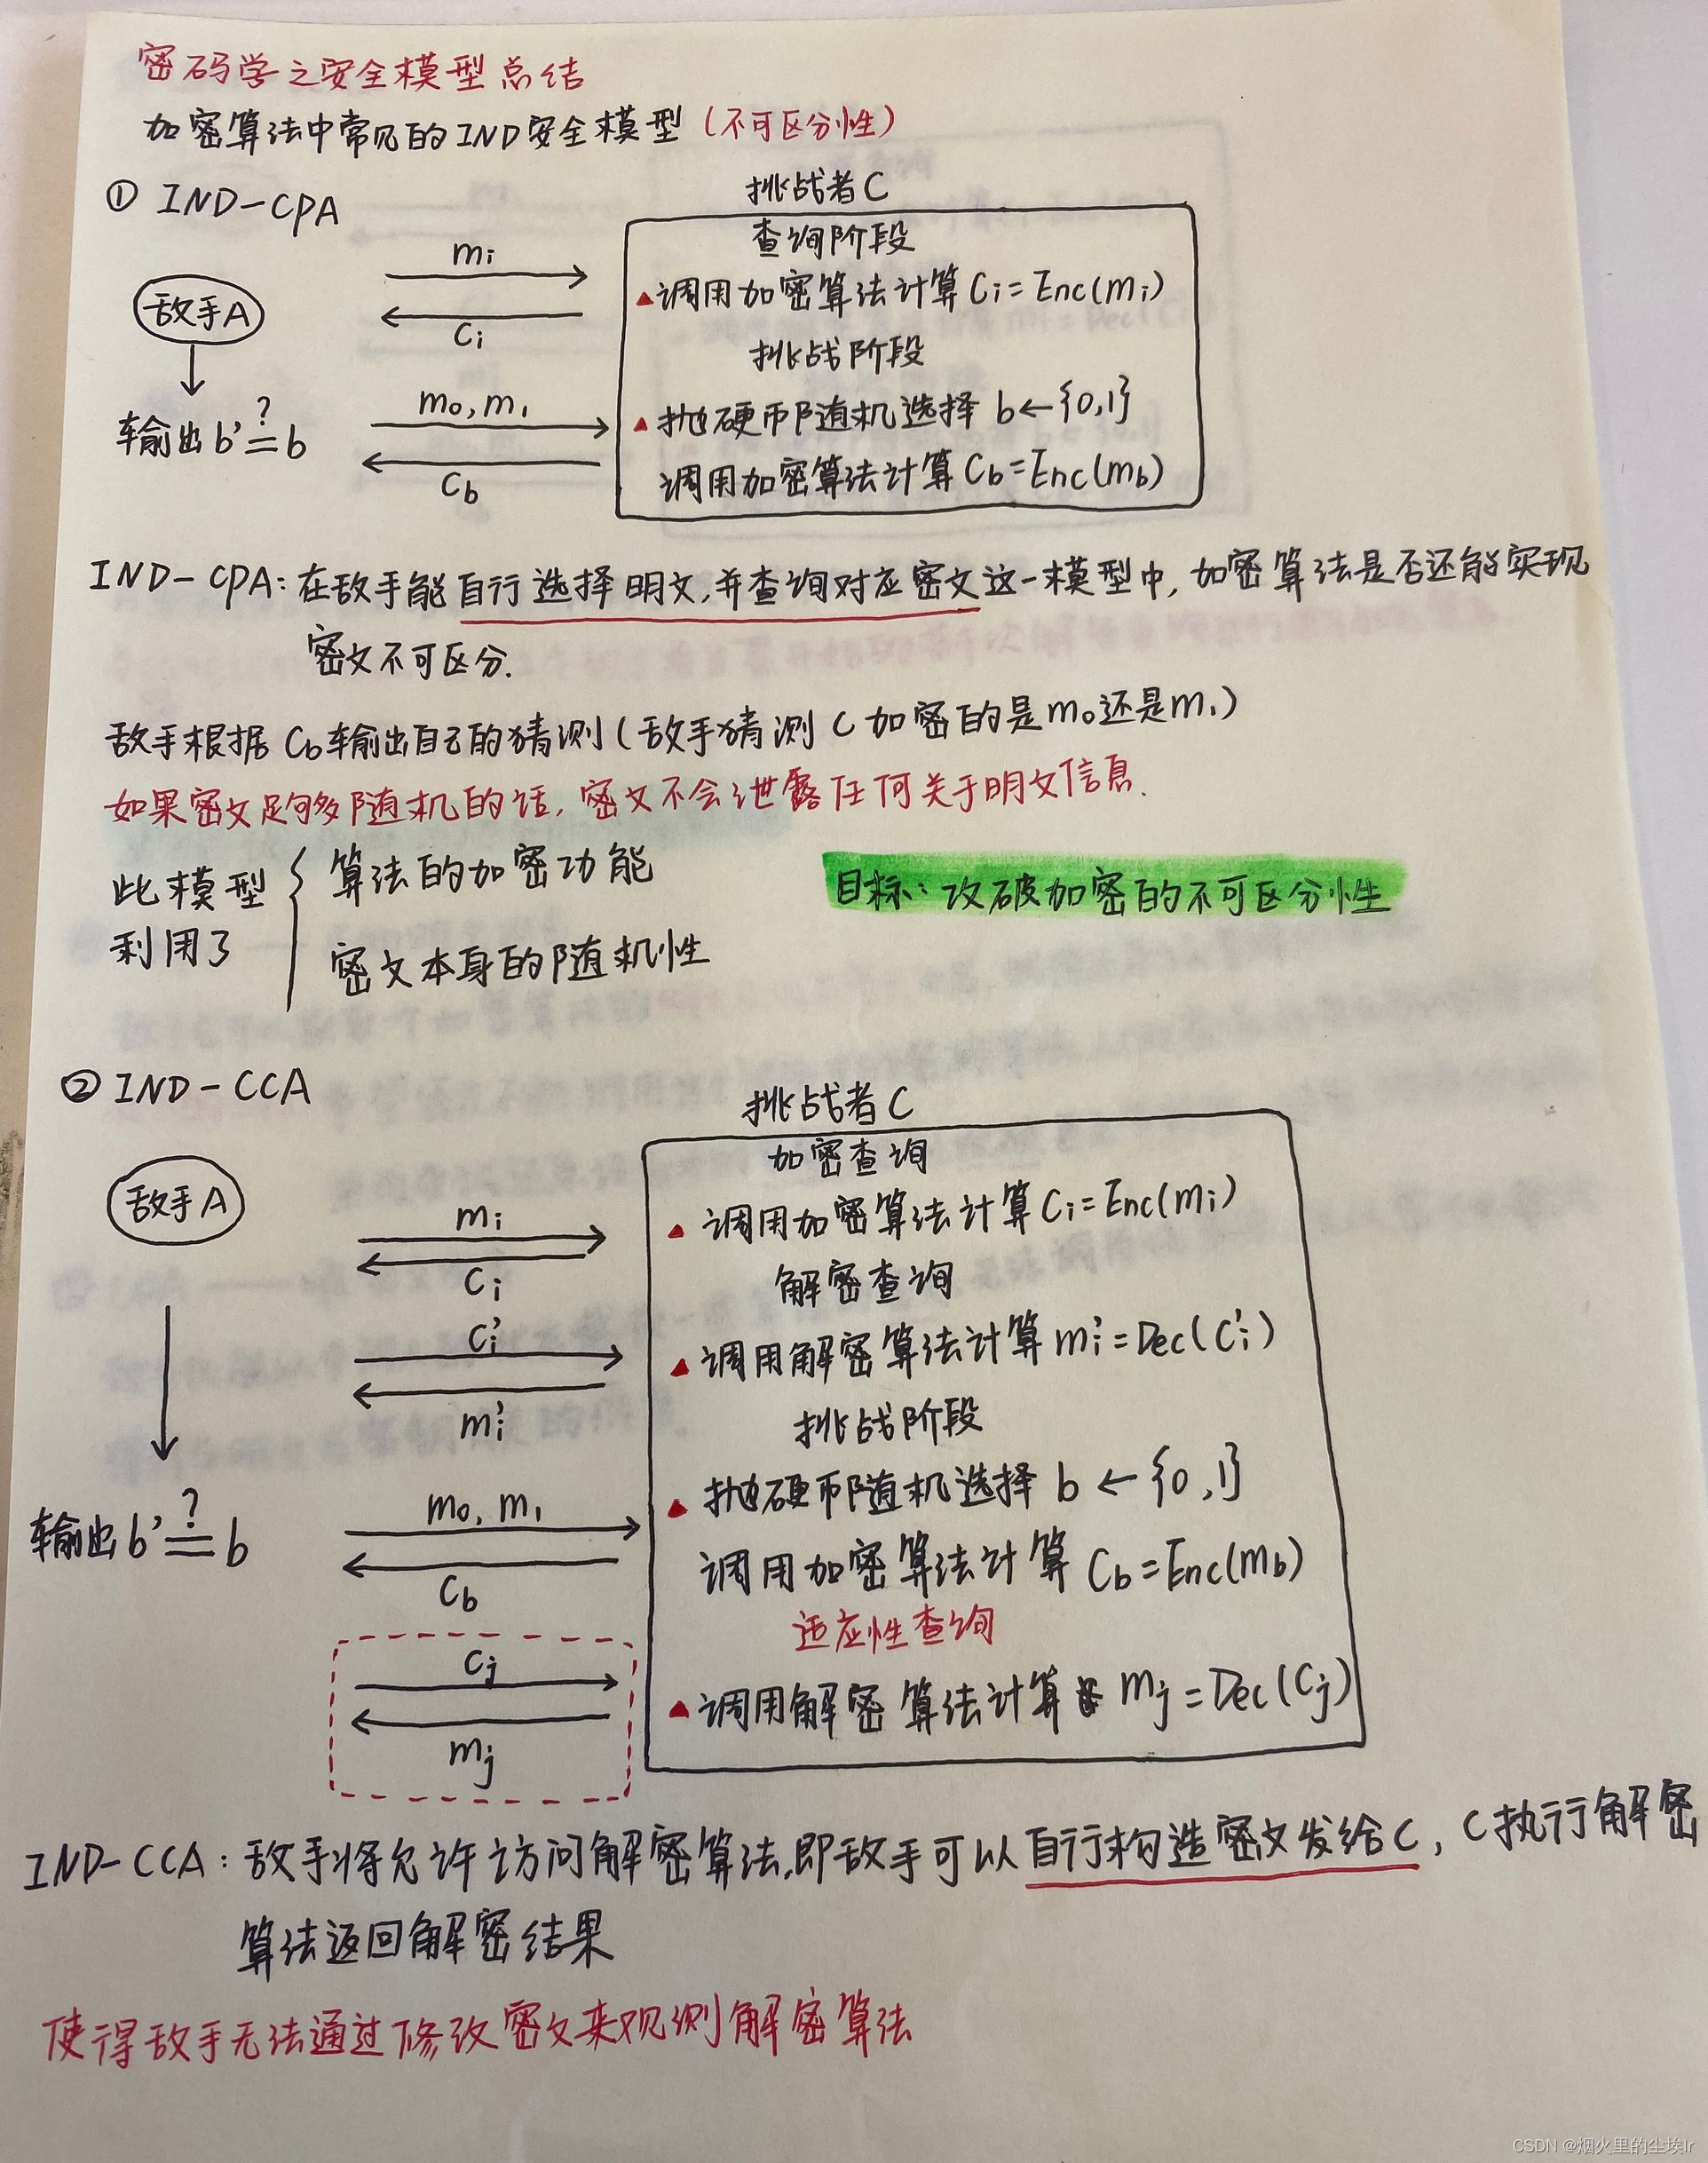 密码学之安全模型总结
加密算法中常见的IND安全模型(不可区分性)
① IND-CPA
挑战者C
查询阶段
mi
▲调用加密算法计算 Ci=Enc(mi)
敌手A
Ci
挑战阶段
m0,m1
▲抛硬币随机选择 b←{0,1}
输出b'≟b
Cb
调用加密算法计算Cb=Enc(mb)
IND-CPA:在敌手能自行选择明文,并查询对应密文这一模型中,加密算法是否还能实现
密文不可区分.
敌手根据Cb输出自己的猜测(敌手猜测C加密的是m0还是m1)
如果密文足够多随机的话,密文不会泄露任何关于明文信息.
此模型
利用了
算法的加密功能
密文本身的随机性
目标:攻破加密的不可区分性
② IND-CCA
挑战者C
加密查询
敌手A
mi
▲调用加密算法计算Ci=Enc(mi)
Ci
解密查询
Ci'
▲调用解密算法计算mi'=Dec(Ci')
mi'
挑战阶段
m0,m1
▲抛硬币随机选择 b←{0,1}
输出b'≟b
Cb
调用加密算法计算 Cb=Enc(mb)
适应性查询
Cj
▲调用解密算法计算 mj=Dec(Cj)
mj
IND-CCA:敌手将允许访问解密算法,即敌手可以自行构造密文发给C,C执行解密
算法返回解密结果
使得敌手无法通过修改密文来观测解密算法
CSDN @烟火里的尘埃lr